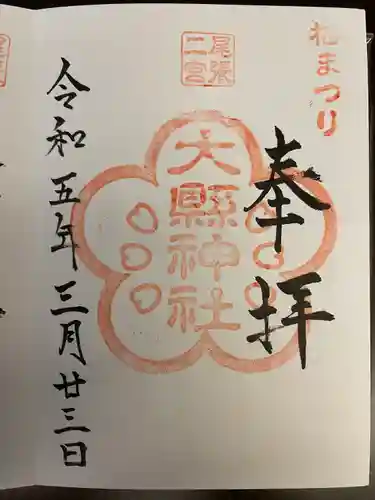 花まつり
奉拝
尾張
二宮
大縣神社
令和五年三月廿三日